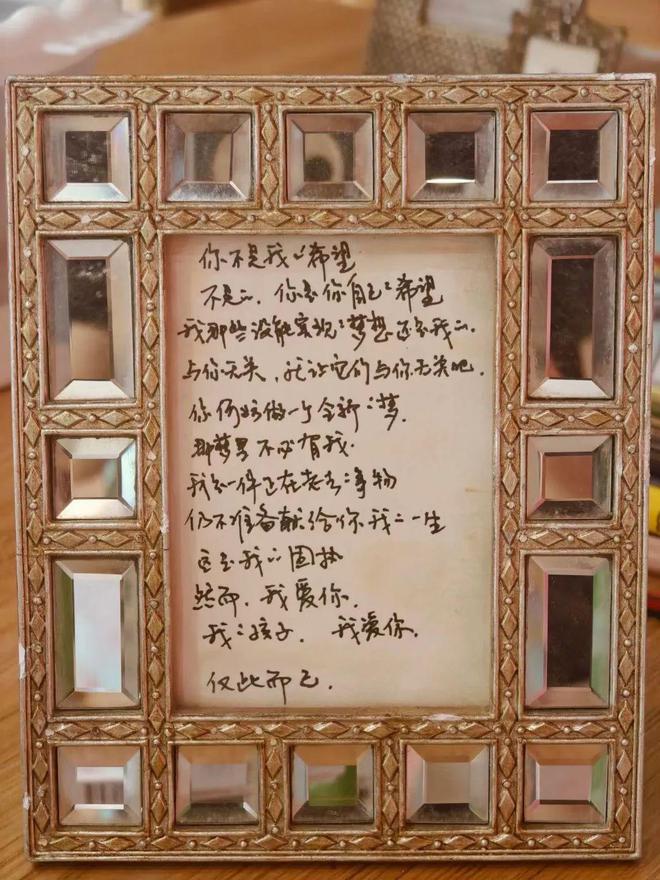 你不是我的希望
不是的，你是你自己的希望
我那些没能实现的梦想还是我的，
与你无关，就让它们与你无关吧，
你何妨做一个全新的梦，
那梦里不必有我，
我是一件正在老去的事物
仍不准备献给你我的一生
这是我的固执
然而，我爱你，
我的孩子，我爱你，
仅此而已。